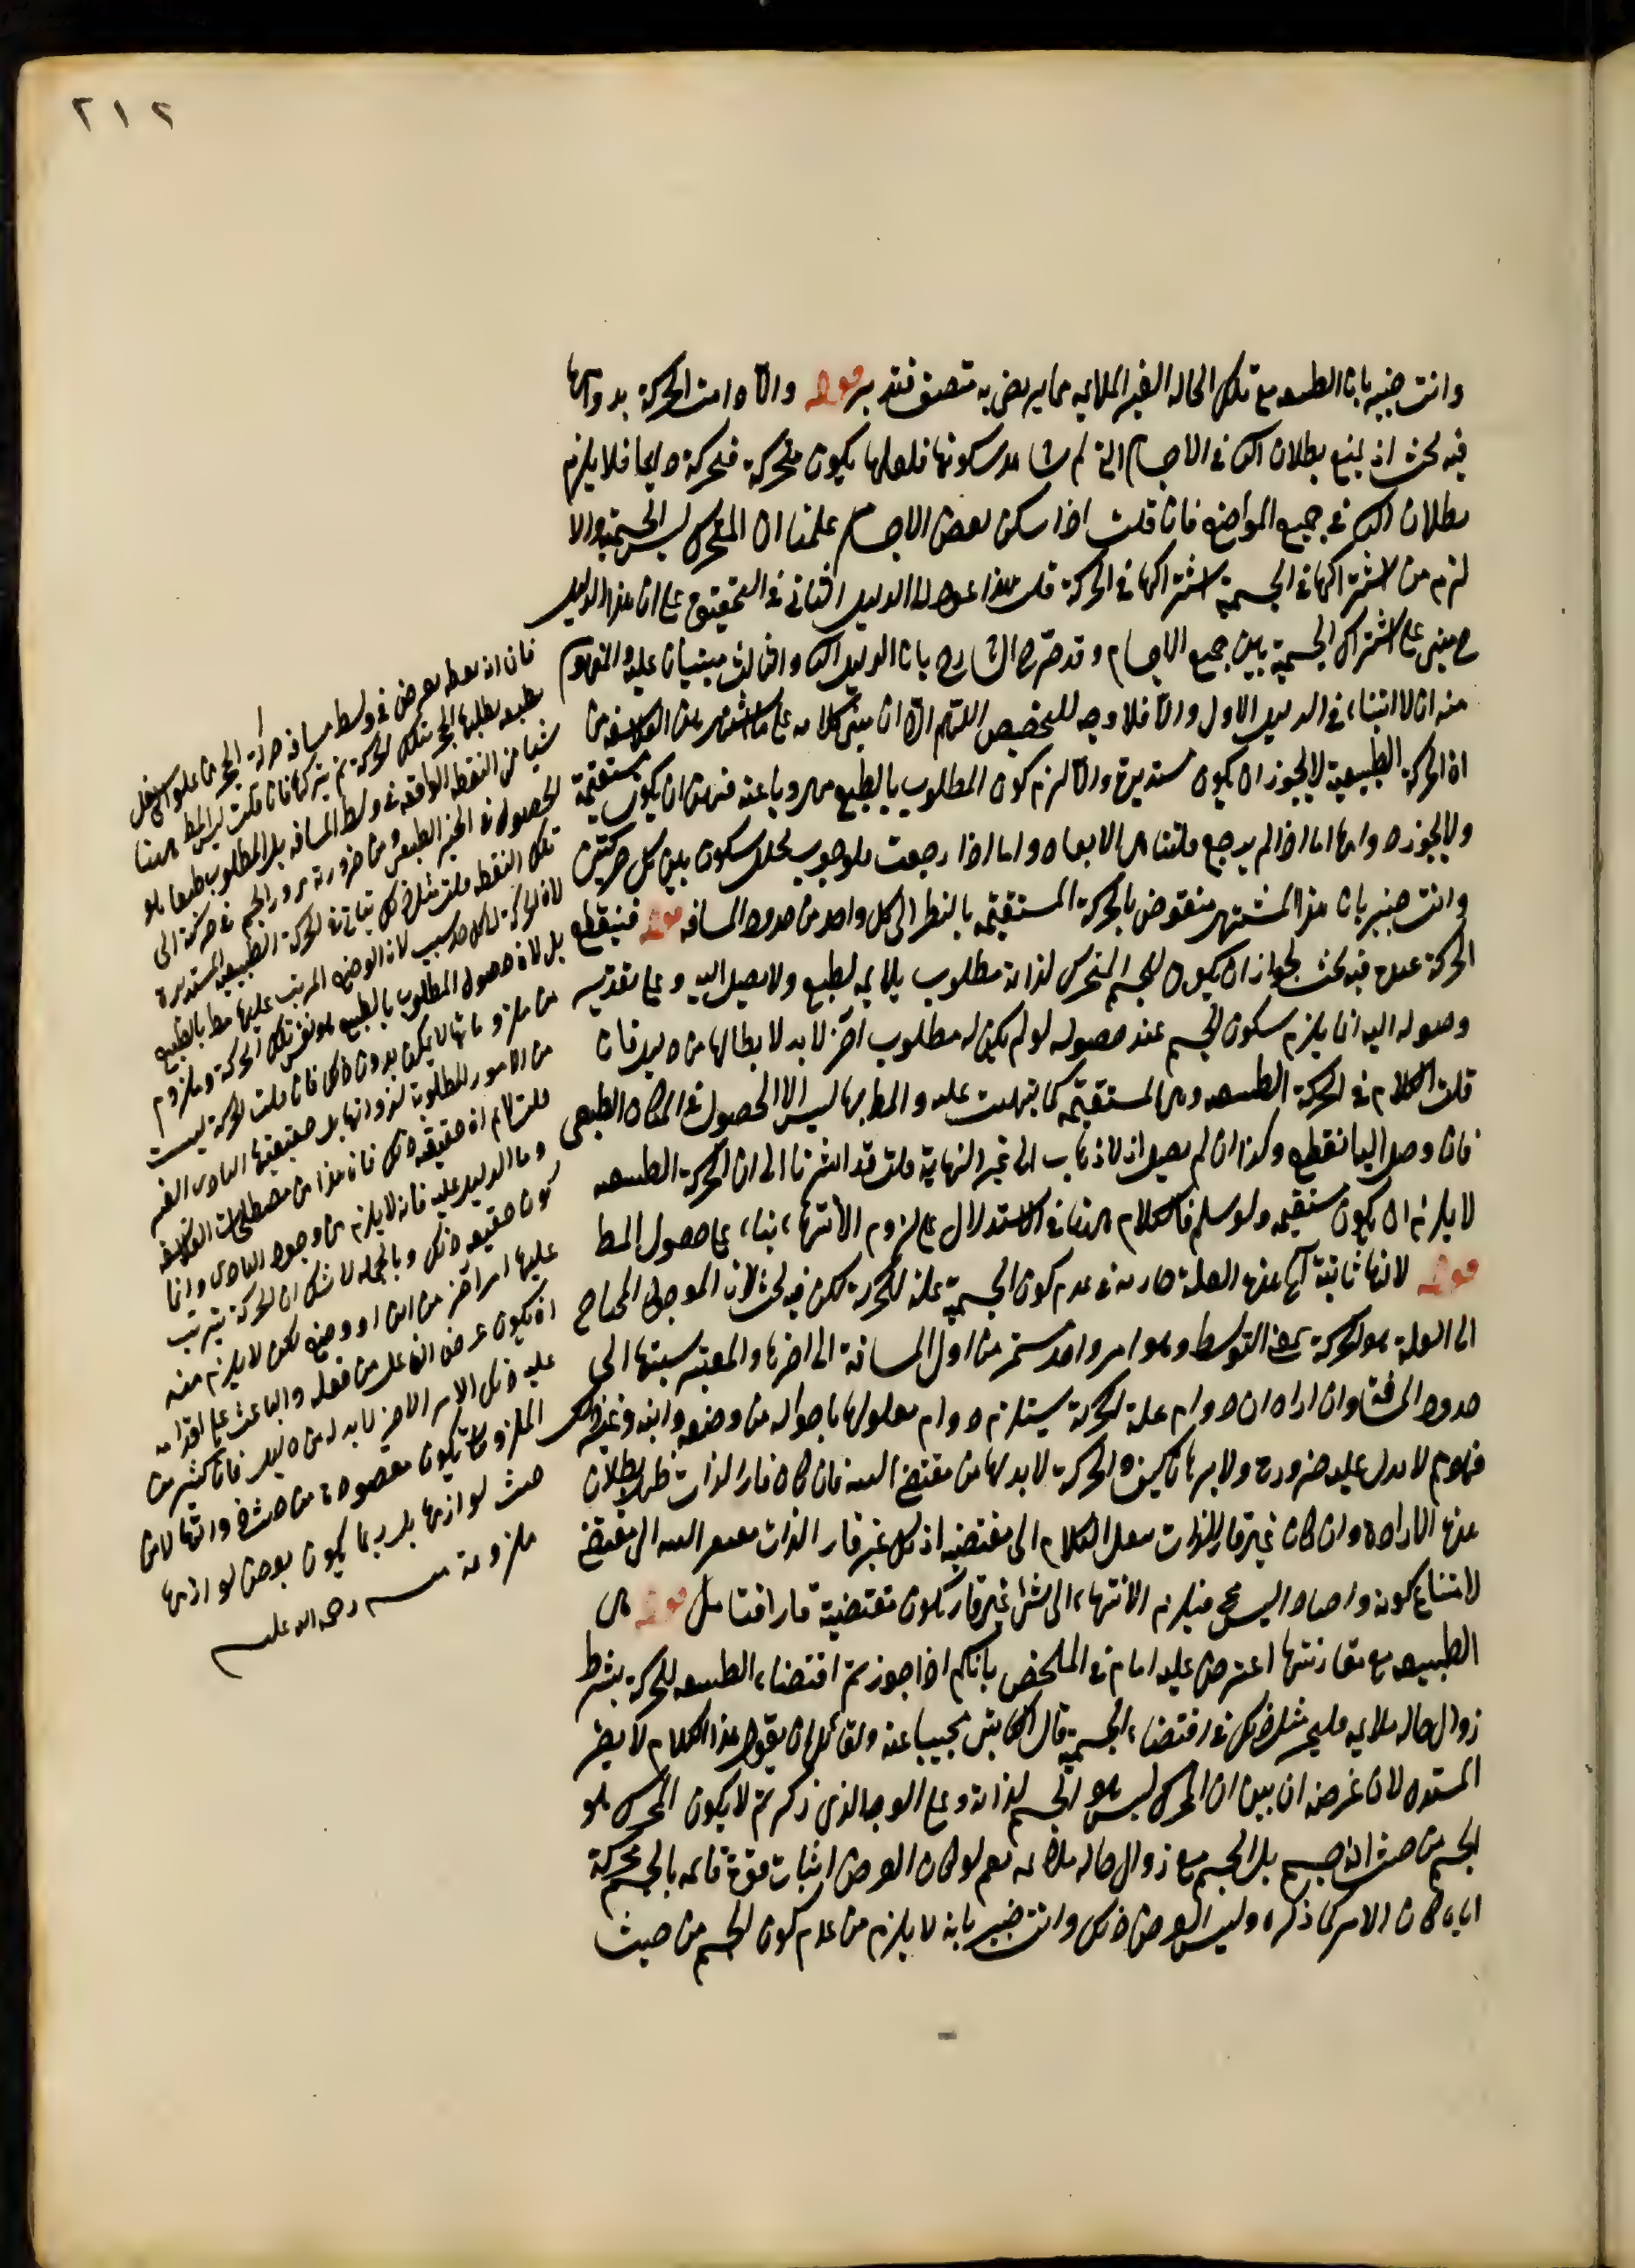 ٢١٢
وانت خبير بان الطبيعه مع تلك الحاله الغير الملايمه مما يرضى به منصف فتدبر قوله والا دامت الحركة بدوامها
فيه بحث اذ يمنع بطلان التالى فى الاجسام التى لم يشاهد سكونها فلعلها يكون متحركة فحركة دايما فلا يلزم
بطلان التالى فى جميع المواضع فان قلت اذا سكن بعض الاجسام علمنا ان المحرك ليس الجسمية والا
لزم من اشتراكها فى الجسمية اشتراكها فى الحركة قلت هذا عود الى الدليل الثانى فى التحقيق على ان هذا الدليل
ح مبنى على اشتراك الجسمية بين جميع الاجسام و قد صرح الشارح بان الدليل الثانى والثالث مبنيان عليه المفهوم
منه ان لا ابتناء فى الدليل الاول والا فلا وجه للتخصيص اللهم الا ان يبنى كلامه على ما اشتهر من الفلاسفه من
ان الحركة الطبيعية لا يجوز ان يكون مستديرة والا لزم كون المطلوب بالطبع مهروبا عنه فتعين ان يكون مستقيمة
ولا يجوز دوامها اما اذا لم يرجع فلتناهى الابعاد واما اذا رجعت فلوجوب تخلل سكون بين كل حركتين
وانت خبير بان هذا المشتهر منقوض بالحركة المستقيمه بالنظر الى كل واحد من حدود المسافه قوله فينقطع
الحركة عنده فيه بحث لجواز ان يكون للجسم المتحرك لذاته مطلوب يلايمه بطبع ولا يصل اليه و على تقدير
وصوله اليه انما يلزم سكون الجسم عند حصوله لو لم يكن له مطلوب آخر لابد لابطالها من دليل فان
قلت الكلام فى الحركة الطبيعيه وهى المستقيمه كما نبهت عليه والمط بها ليس الا الحصول فى المكان الطبيعى
فان وصل اليها انقطع وكذا ان لم يصل اذ لا ذهاب الى غير النهاية قلت قد اشرنا الى ان الحركة الطبيعيه
لا يلزم ان يكون مستقيمه ولو سلم فالكلام هنا فى الاستدلال على لزوم الانتهاء بناء على حصول المط
قوله لانها ثابتة آه هذه العلة جاريه فى عدم كون الجسمية علة للحركة لكن فيه بحث لان الموجود المحتاج
الى العلة هو الحركة بمعنى التوسط وهو امر واحد مستمر من اول المسافة الى اخرها والمعتبر نسبتها الى
حدود المسافة وان اراد ان دوام علة الحركة يستلزم دوام معلولها باحواله من وضعه واينه و غير ذلك
فهو مم لا يدل عليه ضرورة ولا برهان كيف والحركة لابد لها من مقتضى البته فان كان قار الذات ظهر بطلان
هذه الارادة وان كان غير قار الذات ينقل الكلام الى مقتضيه اذ كل غير قار الذات مفتقر البته الى مقتضى
لامتناع كونه واجبا والتسلسل مح فيلزم الانتهاء الى شئ غير قار يكون مقتضيه قارا فتامل قوله هى
الطبيعه مع مقارنتها اعترض عليه امام فى الملخص بانكم اذا جوزتم اقتضاء الطبيعه للحركة بشرط
زوال حاله ملايمه فليجز مثل ذلك فى اقتضاء الجسمية قال الكاتبى مجيبا عنه ولقائل ان يقول هذا الكلام لا يضر
المستدل لان غرضه ان يبين ان المحرك ليس هو الجسم لذاته و على الوجه الذى ذكرتم لا يكون المحرك هو
الجسم من حيث انه جسم بل الجسم مع زوال حاله ملايمه نعم لو كان الغرض اثبات قوة قائمه بالجسم محركة
اياه لكان الامر كما ذكره وليس الغرض ذلك وانت خبير بانه لا يلزم من عدم كون الجسم من حيث
فان اى نقطه يفرض فى وسط مسافه حركة الحجر من علو الى سفل
بطبعه يطلبها الحجر بتلك الحركة ثم يتركها فان قلت ليس المط ههنا
شيئا من النقط الواقعه فى وسط المسافه بل المطلوب طبعا هو
الحصول فى الحيز الطبيعى و من ضرورته مرور الجسم فى حركته الى
تلك النقط قلت مثل ذلك ياتى فى الحركة الطبيعيه المستديرة
لان الحركة لكل حد سبب لان الوضع المرتب عليها مط بالطبع
بل لان حصول المطلوب بالطبع هو نفس تلك الحركة و ملزوم
من ملزوماتها لا يمكن بدون ذلك فان قلت الحركة ليست
من الامور المطلوبة لذواتها بل حقيقتها التادى الى الغير
قلت لا نم ان حقيقته ذلك فان هذا من مصطلحات الفلاسفه
وما الدليل عليه فانه لا يلزم من وجود التادى دائما
كون حقيقته ذلك و بالجمله لا شك ان الحركة يترتب
عليها امر آخر من اين او وضع لكن لا يلزم منه
ان يكون غرض الفاعل من فعله والباعث على اقدامه
عليه ذلك الامر الاخر لابد له من دليل فان كثير من
الملزومات يكون مقصودة من حيث ذواتها لا من
حيث لوازمها بل ربما يكون بعض لوازمها
ملزومة منه رحمه الله عليه